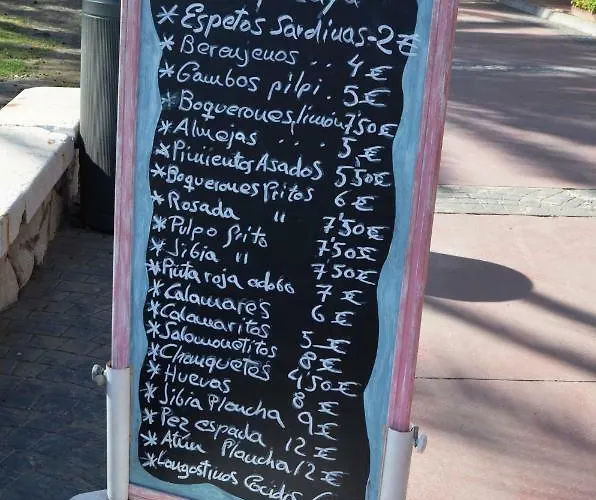 * Espetos Sardinas - 2€
* Berenjenas .. 4€
* Gambas pilpi. 5€
* Boquerones/limón 7'50€
* Almejas .... 5,€
* Pimientos Asados 5'50€
* Boquerones Fritos 6€
* Rosada " 7'50€
* Pulpo frito 7'50€
* Jibia " 7'50€
* Pintaroja adobo 7€
* Calamares 6€
* Calamaritos 5€
* Salmonetitos 8€
* Chanquetes 4,50€
* Huevas 8€
* Jibia Plancha 9€
* Pez espada 12€
* Atún Plancha 12€
* Langostinos Cocidos